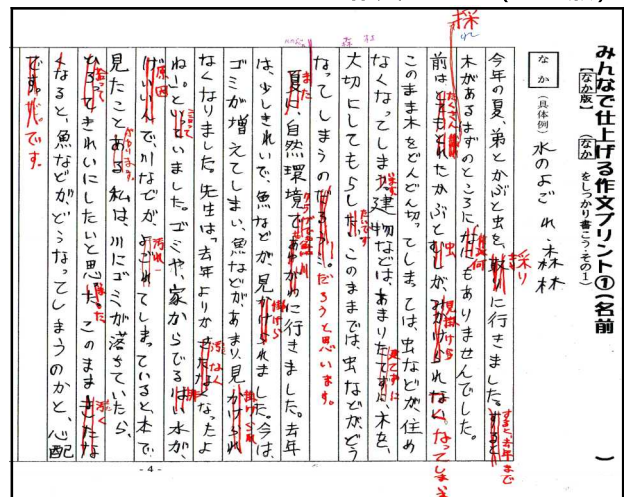 みんなで仕上げる作文プリント①(名前　　　)
【なか版】　(なか をしっかり書こう・その1)
なか　(具体例)　水のよごれ・森林
今年の夏、弟とかぶと虫を、採りに行きました。すると
木があるはずのところになにもありませんでした。
前はとてもとれたかぶとむしがみかけられなくなってしま
このまま木をどんどん切ってしまっては、虫などが、住め
なくなってしまう。建物などは、あまりたてずに、木を、
大切にしてもらした。このままでは、虫などがどう
なってしまうのだろう
だろうと思います。
夏に、自然環境であ
に行きました。去年
は、少しきれいで、魚などが、見かけられました。今は、
ゴミが増えてしまい、魚などが、あまり、見かけられ
なくなりました。先生は「去年よりかきたなくなったよ
ね―。」といっていました。ゴミや、家からでるはい水が、
げいいんで、川などがよごれてしまっていると本で
見たことある私は、川にゴミが落ちていたら、
ひろってきれいにしたいと思った。このままきたな
くなると、魚などが、どうなってしまうのかと、心配
です。
採れ
採り
虫
何
たくさん
すると去年まで
見掛けら
たいです
建てずに
また
掛けら
掛けられ
汚なく
言って
原因
汚れ
拾って
汚く
- 4 -